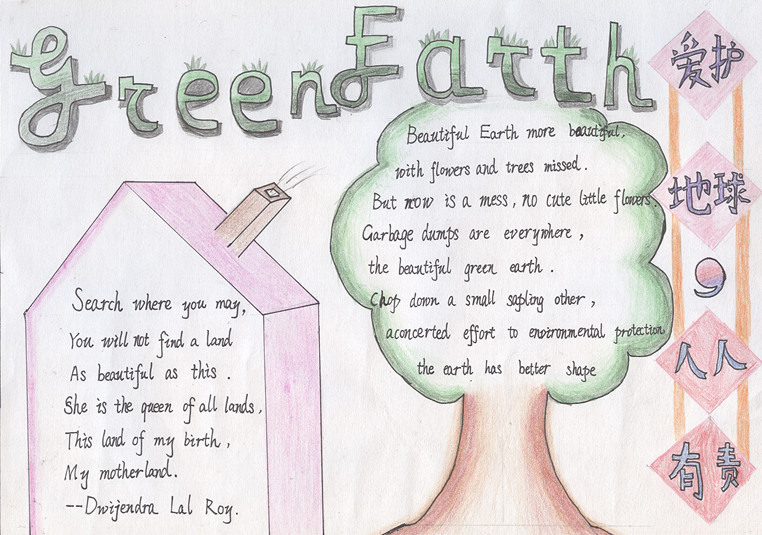 Green Earth
Beautiful Earth more beautiful,
with flowers and trees missed.
But now is a mess, no cute little flowers.
Garbage dumps are everywhere,
the beautiful green earth.
Chop down a small sapling other,
aconcerted effort to environmental protection
the earth has better shape
Search where you may,
You will not find a land
As beautiful as this.
She is the queen of all lands,
This land of my birth,
My motherland.
--Dwijendra Lal Roy.
爱护
地球
，
人人
有责